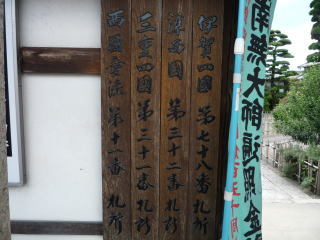 伊賀四國 第七十八番 札所
津西國 第三十二番 札所
三重四國 第三十一番 札所
西國愛染 第十一番 札所
南無大師遍照金